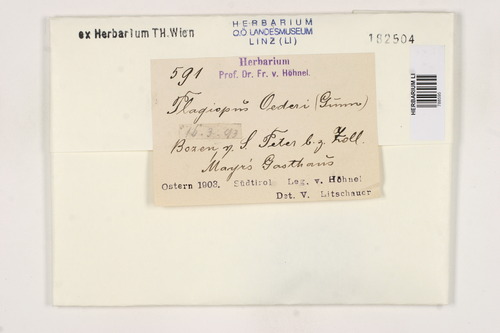 ex Herbarium TH.Wien
HERBARIUM
O.Ö. LANDESMUSEUM
LINZ (LI)
182504
HERBARIUM LI
591
Herbarium
Prof. Dr. Fr. v. Höhnel.
Plagiopus Oederi (Gunn)
Bozen, v. S. Peter b. z. Zoll.
Mayr's Gasthaus
Ostern 1903. Südtirol Leg. v. Höhnel
Det. V. Litschauer